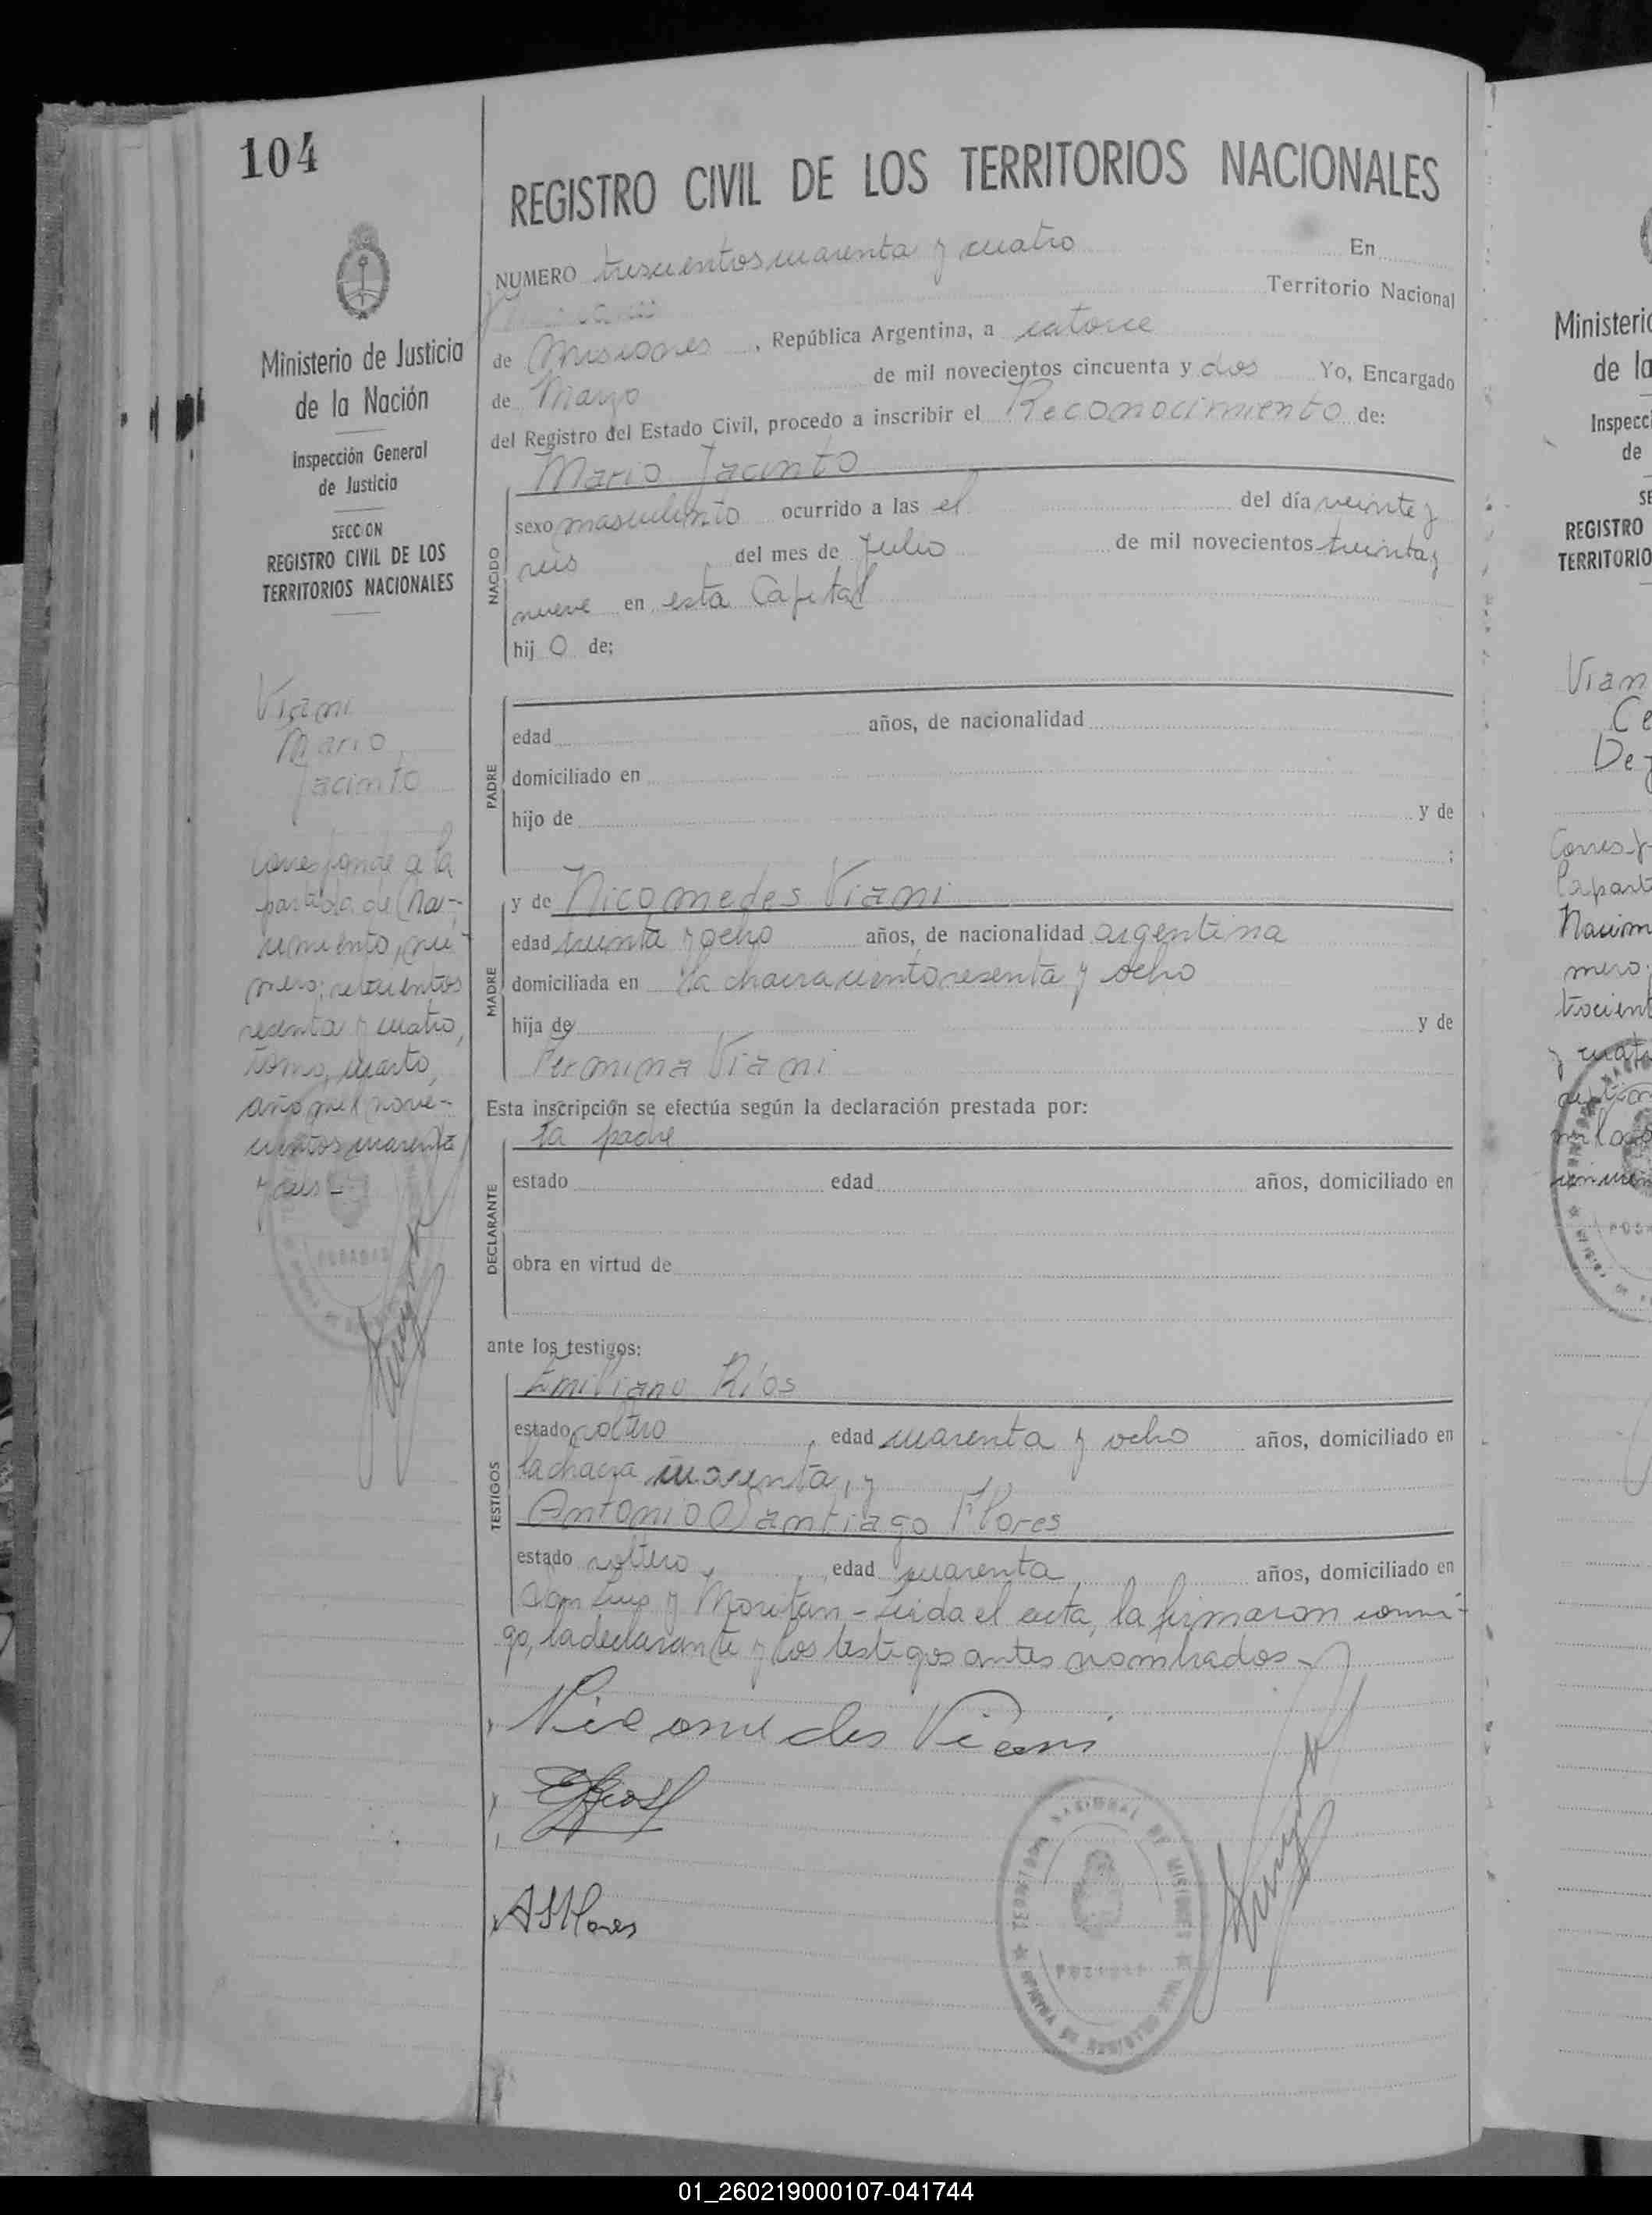 104
REGISTRO CIVIL DE LOS TERRITORIOS NACIONALES
NUMERO trescientos cuarenta y cuatro En
Territorio Nacional
de Misiones, República Argentina, a catorce
de Marzo de mil novecientos cincuenta y dos Yo, Encargado
del Registro del Estado Civil, procedo a inscribir el Reconocimiento de:
Mario Jacinto
NACIDO
sexo masculino ocurrido a las el del día veinte y
seis del mes de Julio de mil novecientos treinta y
nueve en esta Capital
hij o de;
PADRE
edad años, de nacionalidad
domiciliado en
hijo de y de
;
MADRE
y de Nicomedes Viani
edad treinta y ocho años, de nacionalidad argentina
domiciliada en la chacra ciento sesenta y ocho
hija de y de
Fermina Viani
Esta inscripción se efectúa según la declaración prestada por:
la padre
DECLARANTE
estado edad años, domiciliado en
obra en virtud de
ante los testigos:
TESTIGOS
Emiliano Ríos
estado soltero, edad cuarenta y ocho años, domiciliado en
la chacra cuarenta, y
Antonio Santiago Flores
estado soltero, edad cuarenta años, domiciliado en
San Luis y Moritan - Leida el acta, la firmaron conmi-
go, la declarante y los testigos antes nombrados -
Nicomedes Viani
ERios
ASFlores
TERRITORIO NACIONAL DE MISIONES
POSADAS
Ministerio de Justicia
de la Nación
Inspección General
de Justicia
SECCION
REGISTRO CIVIL DE LOS
TERRITORIOS NACIONALES
Viani
Mario
Jacinto
Corresponde a la
partida de Na-
cimiento, nú-
mero; setecientos
sesenta y cuatro,
tomo, cuarto,
año mil nove-
cientos cuarenta
y seis -
POSADAS
Ministerio
de la
Inspecci
de
SE
REGISTRO
TERRITORIO
Viani
Ce
De
Corresp
la part
Nacim
mero;
trocient
y cuat
01_260219000107-041744